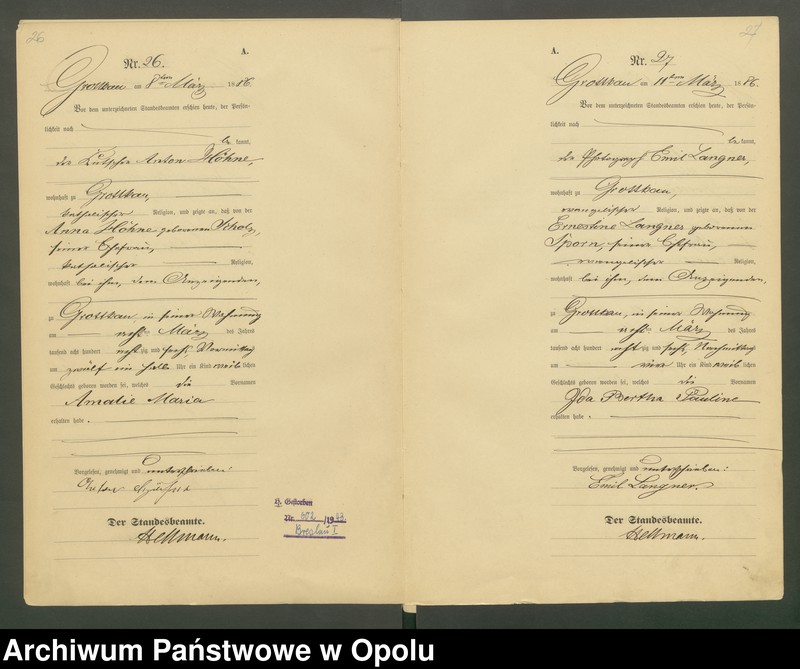 26
A.
Nr. 26.
Grottkau am 8ten März 1886.
Vor dem unterzeichneten Standesbeamten erschien heute, der Persön-
lichkeit nach
be kannt,
der Kutscher Anton Höhne,
wohnhaft zu Grottkau,
katholischer Religion, und zeigte an, daß von der
Anna Höhne geborenen Scholz,
seiner Ehefrau,
katholischer Religion,
wohnhaft bei ihm, dem Anzeigenden,
zu Grottkau, in seiner Wohnung
am März des Jahres
tausend acht hundert acht zig und sechs, Vormittag
um zwölf ein halb Uhr ein Kind weib lichen
Geschlechts geboren worden sei, welches die Vornamen
Amalie Maria
erhalten habe.
Vorgelesen, genehmigt und unterschrieben:
Anton
Der Standesbeamte.
Hellmann.
H. Gestorben
Nr. 602 /1943
Breslau I
27
A.
Nr. 27
Grottkau am 11ten März 1886.
Vor dem unterzeichneten Standesbeamten erschien heute, der Persön-
lichkeit nach
be kannt,
der Photograph Emil Langner,
wohnhaft zu Grottkau,
evangelischer Religion, und zeigte an, daß von der
Ernestine Langner geborenen
Sporn, seiner Ehefrau,
evangelischer Religion,
wohnhaft bei ihm, dem Anzeigenden,
zu Grottkau, in seiner Wohnung
am März des Jahres
tausend acht hundert acht zig und sechs, Nachmittag
um vier Uhr ein Kind weib lichen
Geschlechts geboren worden sei, welches die Vornamen
Ida Bertha Pauline
erhalten habe.
Vorgelesen, genehmigt und unterschrieben:
Emil Langner.
Der Standesbeamte.
Hellmann.
Archiwum Państwowe w Opolu